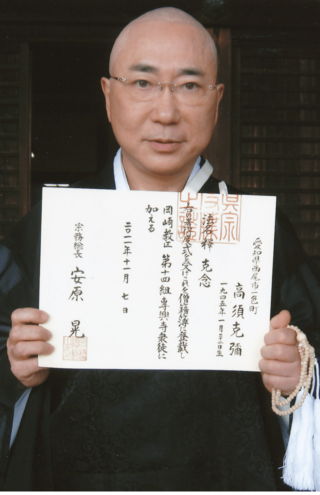 愛知県西尾市一色町
高須克彌
一九四五年一月二十二日生
法名 釋 克念
右得度式を受けられ僧籍簿に登載し
岡崎教区 第十四組 専興寺衆徒に
加える
二〇一一年十一月七日
宗務総長 安原 晃